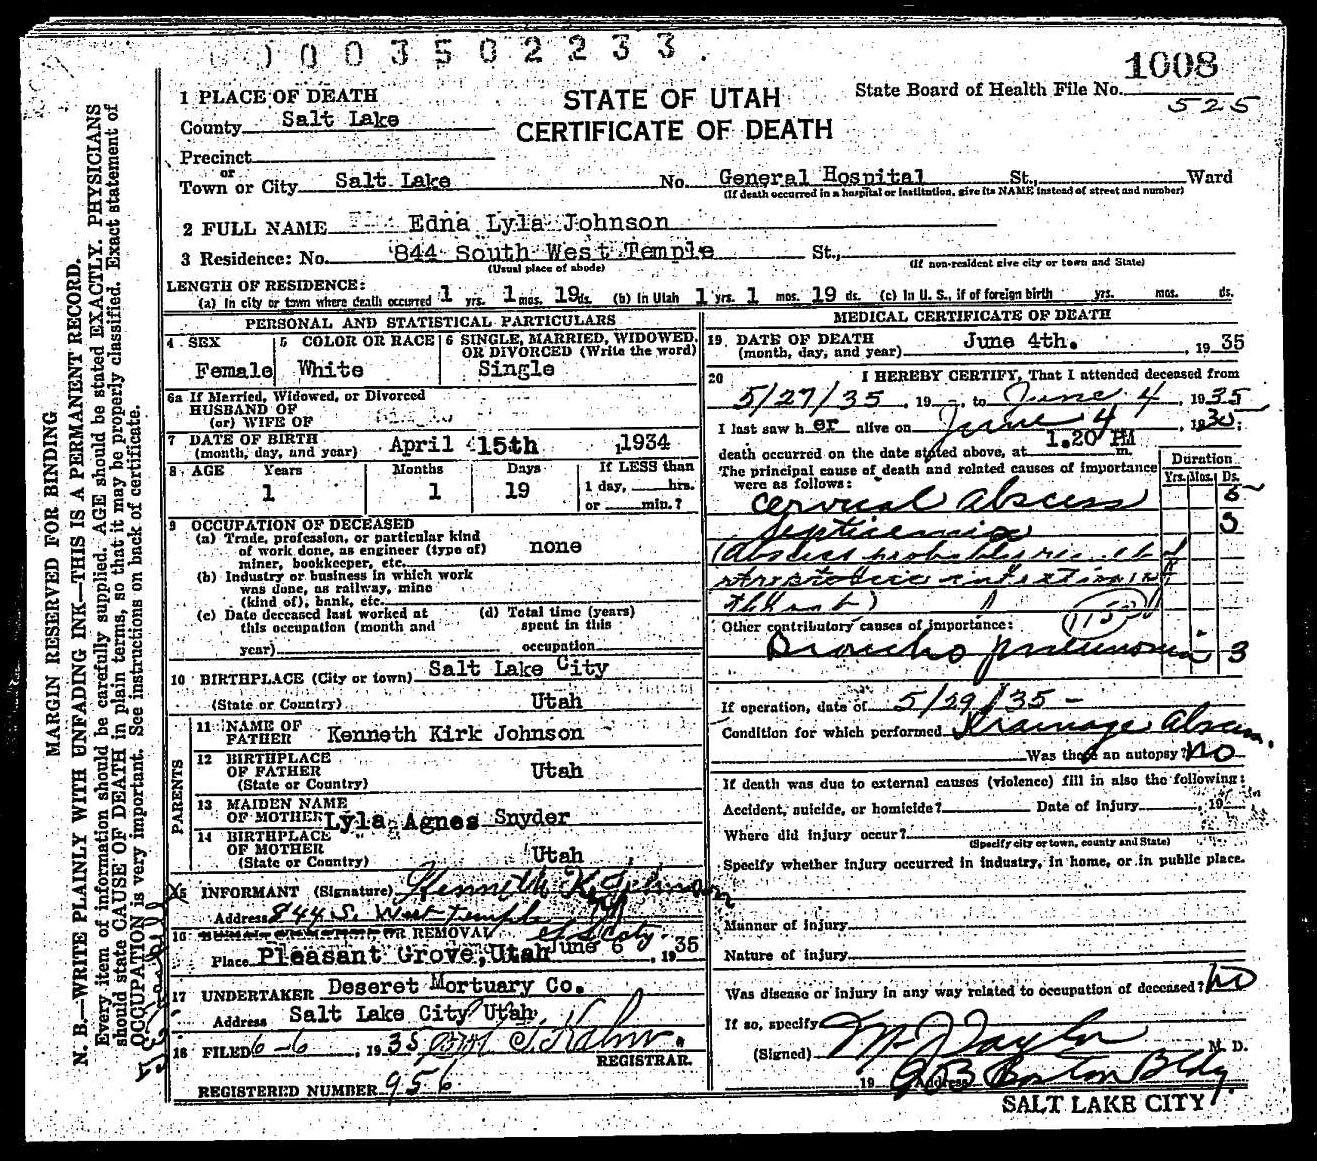 0 0 0 3 5 0 2 2 3 3
1008
State Board of Health File No.
525
STATE OF UTAH
CERTIFICATE OF DEATH
1 PLACE OF DEATH
County Salt Lake
Precinct
or
Town or City Salt Lake No. General Hospital St., Ward
(If death occurred in a hospital or institution, give its NAME instead of street and number)
2 FULL NAME Edna Lyla Johnson
3 Residence: No. 844 South West Temple St.,
(Usual place of abode) (If non-resident give city or town and State)
LENGTH OF RESIDENCE:
(a) In city or town where death occurred 1 yrs. 1 mos. 19 ds. (b) In Utah 1 yrs. 1 mos. 19 ds. (c) In U. S., if of foreign birth yrs. mos. ds.
PERSONAL AND STATISTICAL PARTICULARS
4 SEX
Female
5 COLOR OR RACE
White
6 SINGLE, MARRIED, WIDOWED,
OR DIVORCED (Write the word)
Single
6a If Married, Widowed, or Divorced
HUSBAND OF
(or) WIFE OF
7 DATE OF BIRTH
(month, day, and year) April 15th 1934
8 AGE Years Months Days If LESS than
1 1 19 1 day, hrs.
or min.?
9 OCCUPATION OF DECEASED
(a) Trade, profession, or particular kind
of work done, as engineer (type of) none
miner, bookkeeper, etc.
(b) Industry or business in which work
was done, as railway, mine
(kind of), bank, etc.
(c) Date deceased last worked at (d) Total time (years)
this occupation (month and spent in this
year) occupation
10 BIRTHPLACE (City or town) Salt Lake City
(State or Country) Utah
PARENTS
11 NAME OF
FATHER Kenneth Kirk Johnson
12 BIRTHPLACE
OF FATHER Utah
(State or Country)
13 MAIDEN NAME
OF MOTHER Lyla Agnes Snyder
14 BIRTHPLACE
OF MOTHER
(State or Country) Utah
15 INFORMANT (Signature) Kenneth K. Johnson
Address 844 S. West Temple
16 BURIAL, CREMATION OR REMOVAL City
Place Pleasant Grove, Utah June 6, 1935
17 UNDERTAKER Deseret Mortuary Co.
Address Salt Lake City Utah
18 FILED 6-6, 1935
REGISTRAR.
REGISTERED NUMBER 956
MEDICAL CERTIFICATE OF DEATH
19 DATE OF DEATH
(month, day, and year) June 4th. , 1935
20 I HEREBY CERTIFY, That I attended deceased from
5/27/35, 19 , to June 4, 1935
I last saw her alive on June 4, 1935;
death occurred on the date stated above, at 1.20 PM m.
The principal cause of death and related causes of importance
were as follows:
Duration
Yrs. Mos. Ds.
Cervical abscess 5
Septicemia 3
(Abscess probably
Streptococcic infection in
throat)
Other contributory causes of importance:
Broncho pneumonia 3
If operation, date of 5/29/35 -
Condition for which performed Drainage abscess.
Was there an autopsy? No
If death was due to external causes (violence) fill in also the following:
Accident, suicide, or homicide? Date of injury , 19
Where did injury occur?
(Specify city or town, county and State)
Specify whether injury occurred in industry, in home, or in public place.
Manner of injury
Nature of injury
Was disease or injury in any way related to occupation of deceased? No
If so, specify
(Signed) Taylor M. D.
19 Address Boston Bldg.
SALT LAKE CITY
MARGIN RESERVED FOR BINDING
N. B.—WRITE PLAINLY WITH UNFADING INK—THIS IS A PERMANENT RECORD.
Every item of information should be carefully supplied. AGE should be stated EXACTLY. PHYSICIANS
should state CAUSE OF DEATH in plain terms, so that it may be properly classified. Exact statement of
OCCUPATION is very important. See instructions on back of certificate.